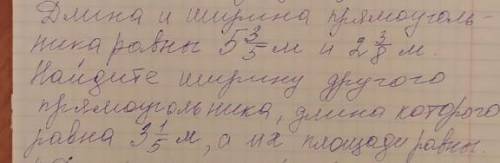 Длина и ширина прямоуголь-
ника равны 5 3/5 м и 2 3/8 м
Найдите ширину другого
прямоугольника, длина которого
равна 3 1/5 м, а их площади равны.